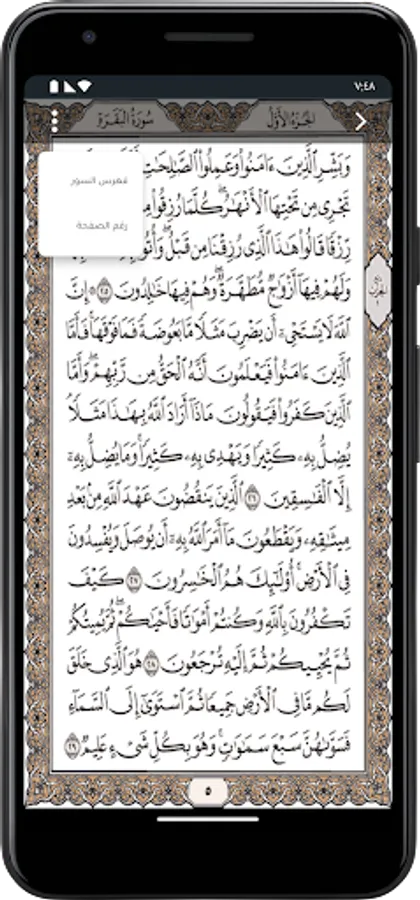 ٧:٤٨
الجزء الأول
سورة البقرة
فهرس السور
رقم الصفحة
وَبَشِّرِ ٱلَّذِينَ ءَامَنُوا۟ وَعَمِلُوا۟ ٱلصَّـٰلِحَـٰتِ
تَجْرِى مِن تَحْتِهَا ٱلْأَنْهَـٰرُ ۖ كُلَّمَا رُزِقُوا۟
رِّزْقًا قَالُوا۟ هَـٰذَا ٱلَّذِى رُزِقْنَا مِن قَبْلُ ۖ وَأُتُوا۟
وَلَهُمْ فِيهَآ أَزْوَٰجٌ مُّطَهَّرَةٌ ۖ وَهُمْ فِيهَا خَـٰلِدُونَ ٢٥ ۞ إِنَّ
ٱللَّهَ لَا يَسْتَحْىِۦٓ أَن يَضْرِبَ مَثَلًا مَّا بَعُوضَةً فَمَا فَوْقَهَا ۚ فَأَمَّا
ٱلَّذِينَ ءَامَنُوا۟ فَيَعْلَمُونَ أَنَّهُ ٱلْحَقُّ مِن رَّبِّهِمْ ۖ وَأَمَّا
ٱلَّذِينَ كَفَرُوا۟ فَيَقُولُونَ مَاذَآ أَرَادَ ٱللَّهُ بِهَـٰذَا مَثَلًا ۘ
يُضِلُّ بِهِۦ كَثِيرًا وَيَهْدِى بِهِۦ كَثِيرًا ۚ وَمَا يُضِلُّ بِهِۦٓ
إِلَّا ٱلْفَـٰسِقِينَ ٢٦ ٱلَّذِينَ يَنقُضُونَ عَهْدَ ٱللَّهِ مِنۢ بَعْدِ
مِيثَـٰقِهِۦ وَيَقْطَعُونَ مَآ أَمَرَ ٱللَّهُ بِهِۦٓ أَن يُوصَلَ وَيُفْسِدُونَ
فِى ٱلْأَرْضِ ۚ أُو۟لَـٰٓئِكَ هُمُ ٱلْخَـٰسِرُونَ ٢٧ كَيْفَ
تَكْفُرُونَ بِٱللَّهِ وَكُنتُمْ أَمْوَٰتًا فَأَحْيَـٰكُمْ ۖ ثُمَّ يُمِيتُكُمْ
ثُمَّ يُحْيِيكُمْ ثُمَّ إِلَيْهِ تُرْجَعُونَ ٢٨ هُوَ ٱلَّذِى خَلَقَ
لَكُم مَّا فِى ٱلْأَرْضِ جَمِيعًا ثُمَّ ٱسْتَوَىٰٓ إِلَى ٱلسَّمَآءِ
فَسَوَّىٰهُنَّ سَبْعَ سَمَـٰوَٰتٍ ۚ وَهُوَ بِكُلِّ شَىْءٍ عَلِيمٌ ٢٩
٥